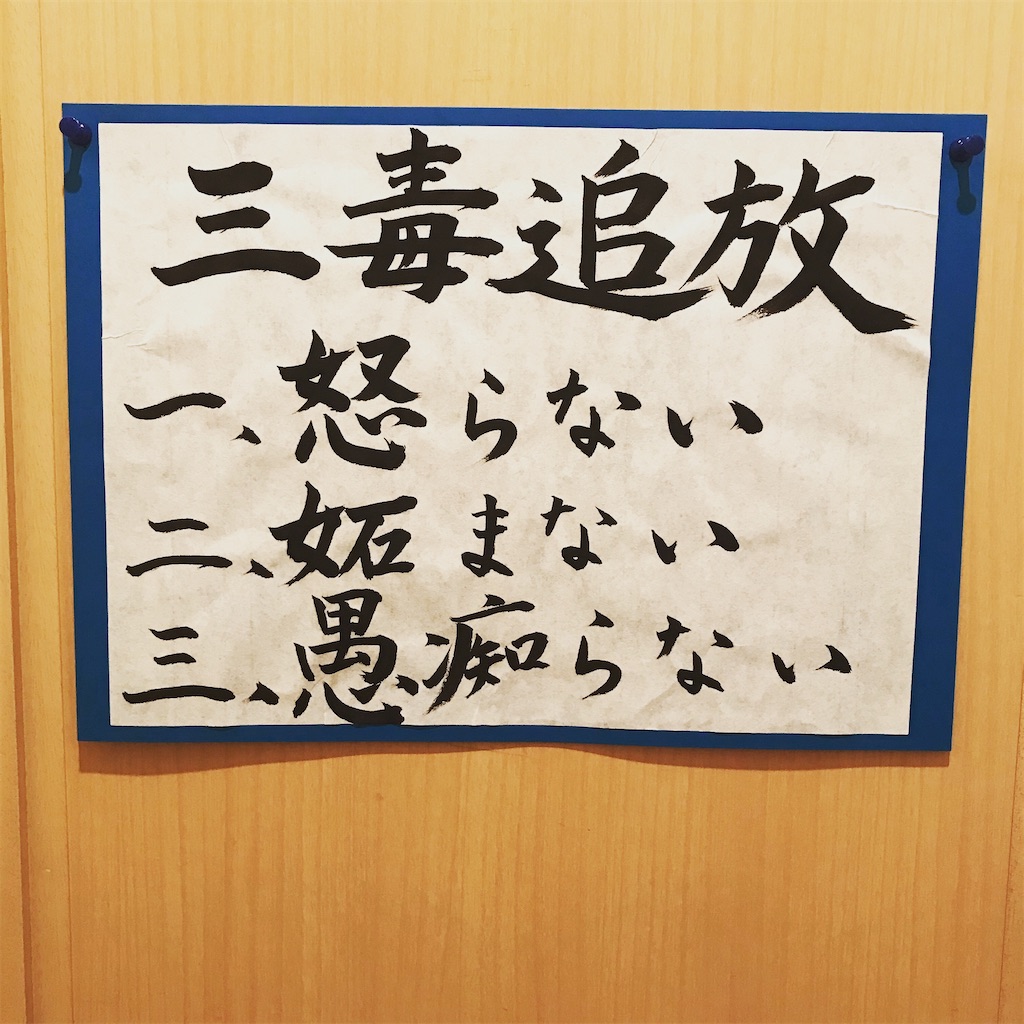 三毒追放
一、怒らない
二、妬まない
三、愚痴らない